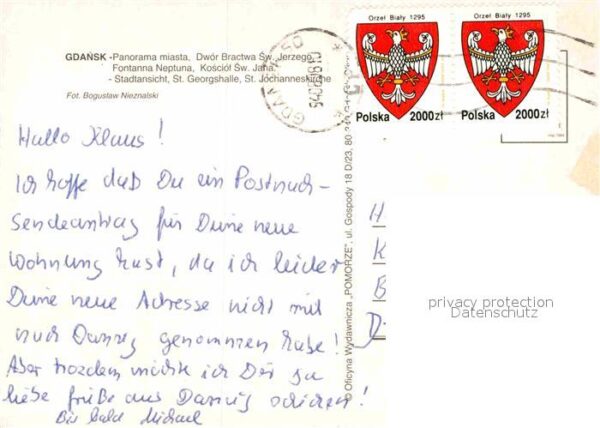 GDAŃSK - Panorama miasta, Dwór Bractwa Św. Jerzego,
Fontanna Neptuna, Kościół Św. Jana.
- Stadtansicht, St. Georgshalle, St. Jochanneskirche
Fot. Bogusław Nieznalski
Hallo Klaus!
Ich hoffe daß Du ein Postnach-
sendeantrag für Deine neue
Wohnung hast, da ich leider
Deine neue Adresse nicht mit
nach Danzig genommen habe!
Aber trozdem möchte ich Dir
liebe Grüße aus Danzig schicken!
Bis bald Michael
Orzeł Biały 1295
Polska 2000 zł
Orzeł Biały 1295
Polska 2000 zł
© Oficyna Wydawnicza „POMORZE", ul. Gospody 18 D/23, 80
H
K
B
D-
privacy protection
Datenschutz